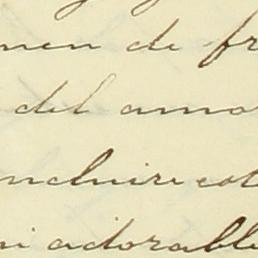 men de fr
del amo
ncluire est
mi adorable